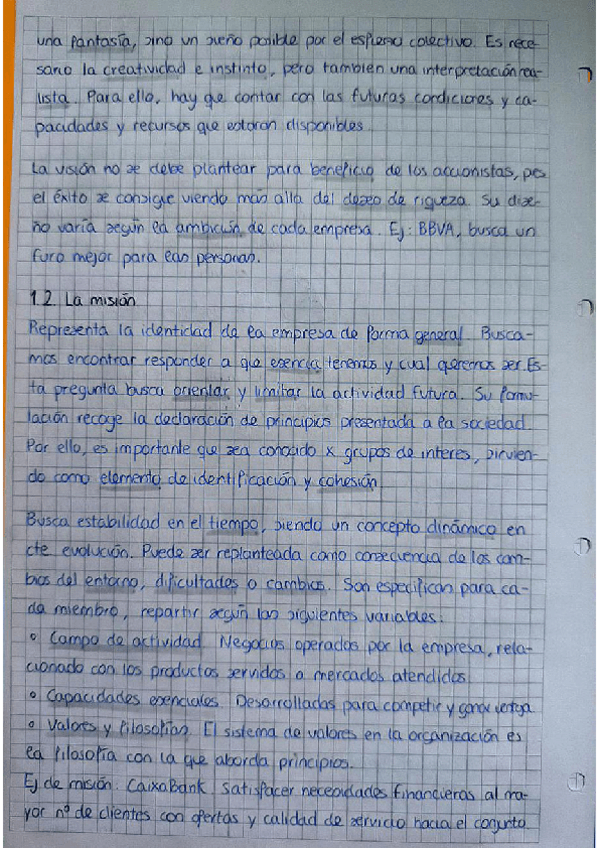 una fantasía, sino un sueño posible por el esfuerzo colectivo. Es nece-
sario la creatividad e instinto, pero también una interpretación rea-
lista. Para ello, hay que contar con las futuras condiciones y ca-
pacidades y recursos que estarán disponibles.
La visión no se debe plantear para beneficio de los accionistas, pes
el éxito se consigue viendo más allá del deseo de riqueza. Su dise-
ño varía según la ambición de cada empresa. Ej: BBVA, busca un
furo mejor para las personas.
1.2. La misión
Representa la identidad de la empresa de forma general. Busca-
mos encontrar responder a que esencia tenemos y cual queremos ser. Es-
ta pregunta busca orientar y limitar la actividad futura. Su formu-
lación recoge la declaración de principios presentada a la sociedad.
Por ello, es importante que sea conocido x grupos de interes, sirvien-
do como elemento de identificación y cohesión.
Busca estabilidad en el tiempo, siendo un concepto dinámico en
cte evolución. Puede ser replanteada como consecuencia de los cam-
bios del entorno, dificultades o cambios. Son especifican para ca-
da miembro, repartir según las siguientes variables:
° Campo de actividad. Negocios operados por la empresa, rela-
cionado con los productos servidos o mercados atendidos
° Capacidades esenciales. Desarrolladas para competir y ganar ventaja
° Valores y filosofías. El sistema de valores en la organización es
la filosofía con la que aborda principios.
Ej de misión. CaixaBank. Satisfacer necesidades financieras al ma-
yor nº de clientes con ofertas y calidad de servicio hacia el conjunto.